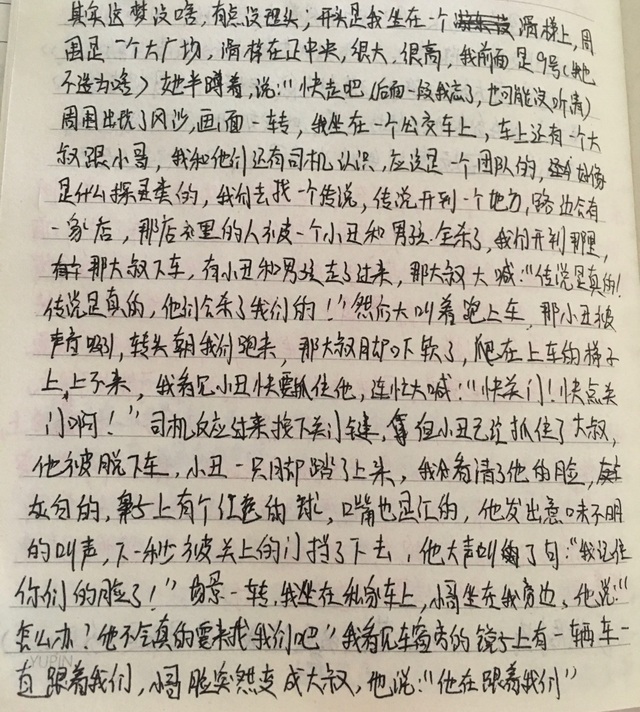 其实这梦没啥，有点没理头；开头是我坐在一个滑梯上，周
围是一个大广场，滑梯在正中央，很大，很高，我前面是9号(她也
不造为啥）她半蹲着，说："快走吧(后面一段我忘了，也可能没听清)
周围出现了风沙，画面一转，我坐在一个公交车上，车上还有一个大
叔跟小哥，我和他们还有司机认识，应该是一个团队的，好像
是什么探灵类的，我们去找一个传说，传说开到一个地方，路边会有
一家店，那店里的人被一个小丑和男孩全杀了，我们开到那里，
那大叔下车，有小丑和男孩走了过来，那大叔大喊："传说是真的！
传说是真的，他们会杀了我们的！"然后大叫着跑上车，那小丑被
声音吸引，转头朝我们跑来，那大叔脚吓软了，爬在上车的梯子
上，上不来，我看见小丑快要抓住他，连忙大喊："快关门！快点关
门啊！"司机反应过来按下关门键，但小丑已经抓住了大叔，
他被脱下车，小丑一只脚踏了上来，我看清了他的脸，
灰白的，鼻子上有个红色的球，嘴也是红的，他发出意味不明
的叫声，下一秒被关上的门挡了下去，他大声叫了句："我记住
你们的脸了！"场景一转，我坐在私家车上，小哥坐在我旁边，他说："
怎么办？他不会真的要来找我们吧"我看见车窗旁的镜子上有一辆车一
直跟着我们，小哥脸突然变成大叔，他说："他在跟着我们"
YUPIN